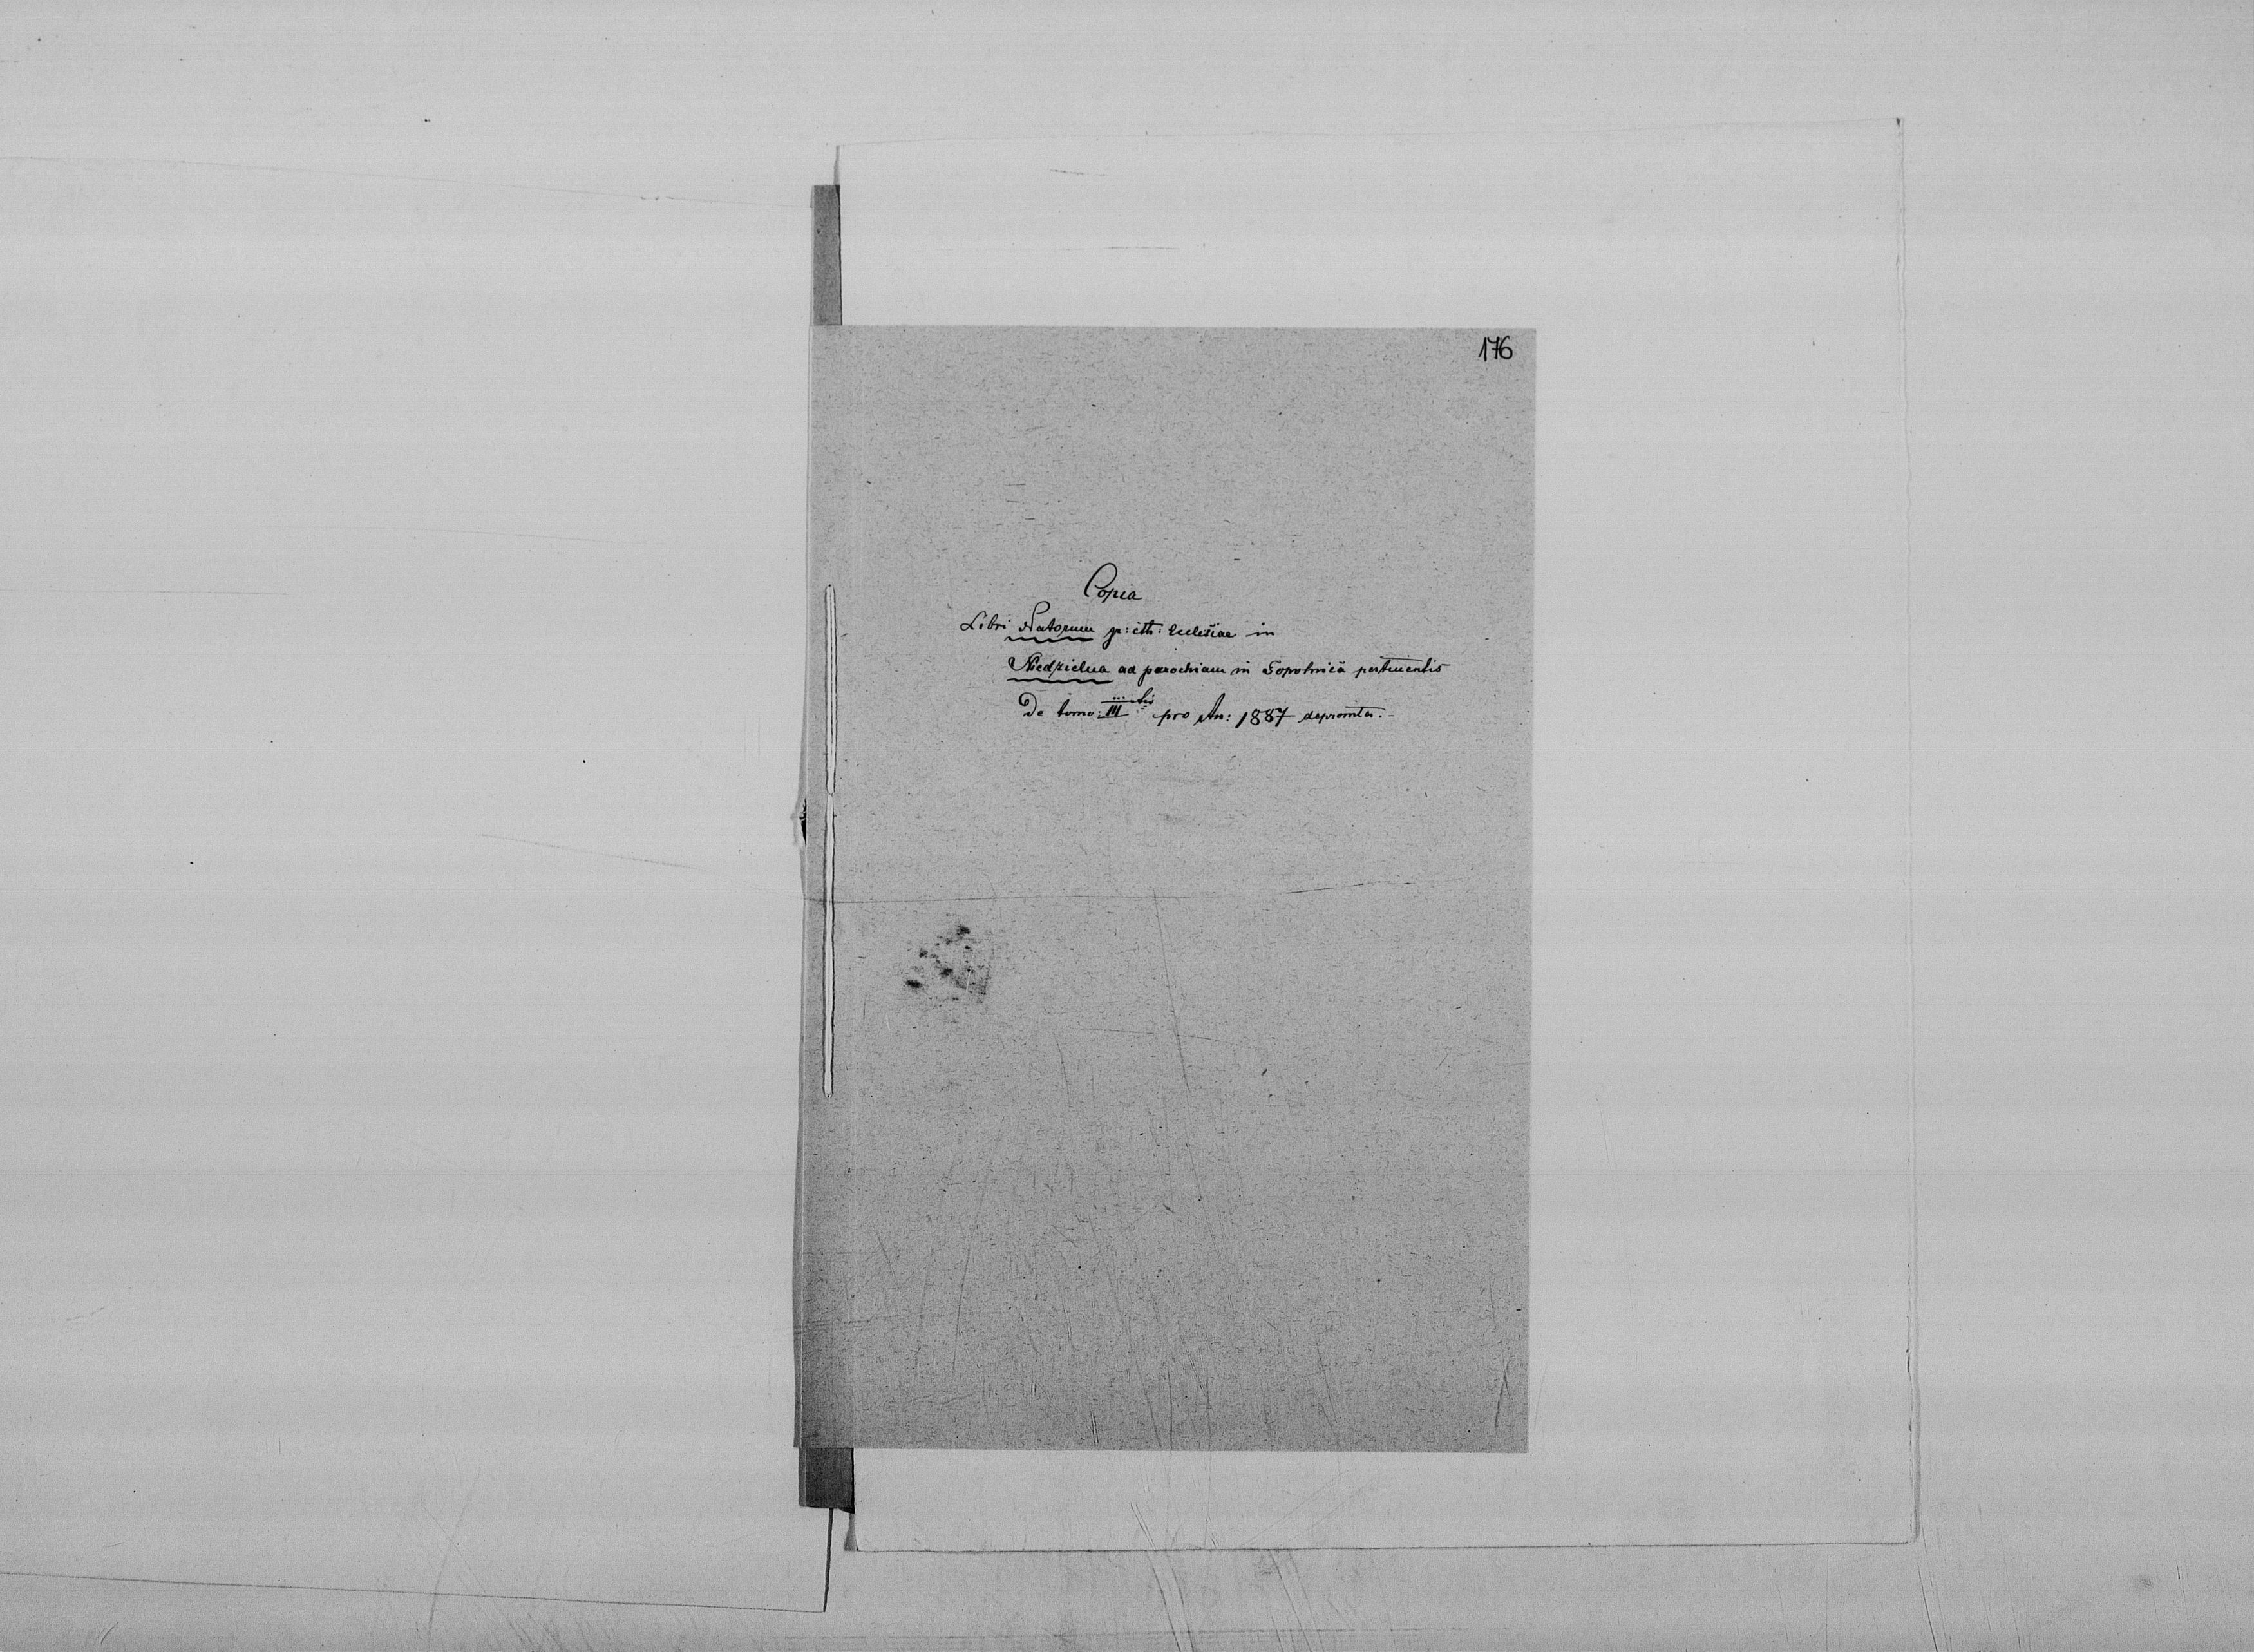 176
Copia
Libri Natorum gr: cth: Ecclesiae in
Niedzielna ad parochiam in Topolnica pertinentis
De tomo: III pro An: 1887 depromta.-